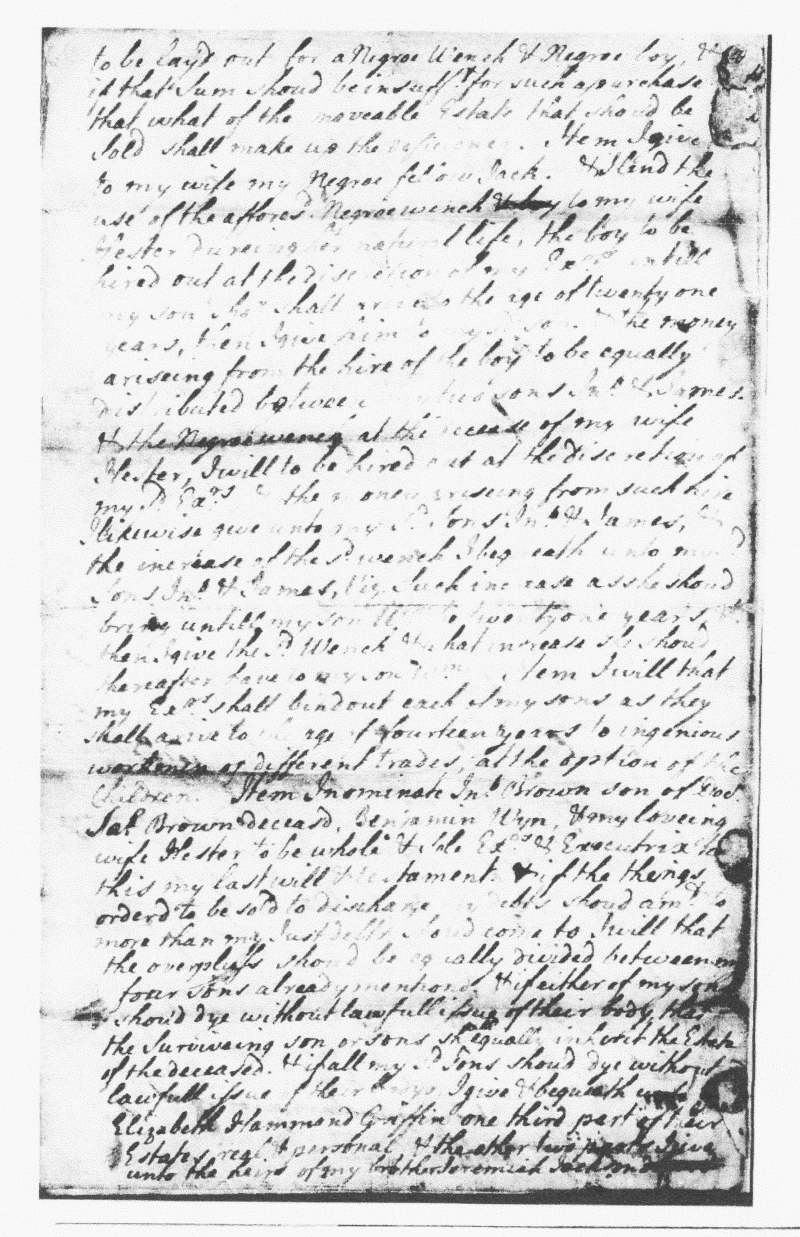 to be lay'd out for a Negroe Wench & Negroe boy, &
if that Sum shoud be insuff.t for such a purchase
that what of the moveable Estate that shoud be
Sold shall make up the Item I give
to my wife my Negroe fellow Jack. & I lend the
use of the affores.d Negroe wench to my wife
Hester dureing her natural life, the boy to be
hired out at the discretion of my Ex.rs untill
my son shall arive to the age of twenty one
years, then I give him to my s.d son. The money
ariseing from the hire of the boy to be equally
distributed between my two sons Jn.o & James.
& the Negroe wench at the decease of my wife
Hester, I will to be hired out at the discretion of
my s.d Ex.rs & the money ariseing from such hire
I likewise give unto my s.d Sons Jn.o & James, &
the increase of the s.d wench I bequeath unto my s.d
Sons Jn.o & James, Viz. Such increase as she shoud
bring untill my son to twenty one years, &
then I give the s.d Wench & what increase she shoud
thereafter have to my son Item I will that
my Ex.rs shall bind out each of my sons as they
shall arive to the age of fourteen years to ingenious
workmen of different trades, at the option of the
Children. Item I nominate Jn.o Brown son of
Brown deceasd, Benjamin Wyn, & my loveing
wife Hester to be whole & sole Ex.rs & Executrix to
this my last will & testament & if the things
orderd to be sold to discharge my debts shoud am.t to
more than my Just debts shoud come to I will that
the overpluss shoud be equally divided between my
four sons already mentiond & if either of my sons
shoud dye without lawfull issue of their body, that
the Surviveing son or sons sh.d equally inherit the Estate
of the deceased. & if all my s.d Sons shoud dye without
lawfull issue of their bodys, I give & bequeath unto
Elizabeth Hammond Griffin one third part of their
Estates real & personal & the other two parts I give
unto the heirs of my brother Jeremiah Jackson